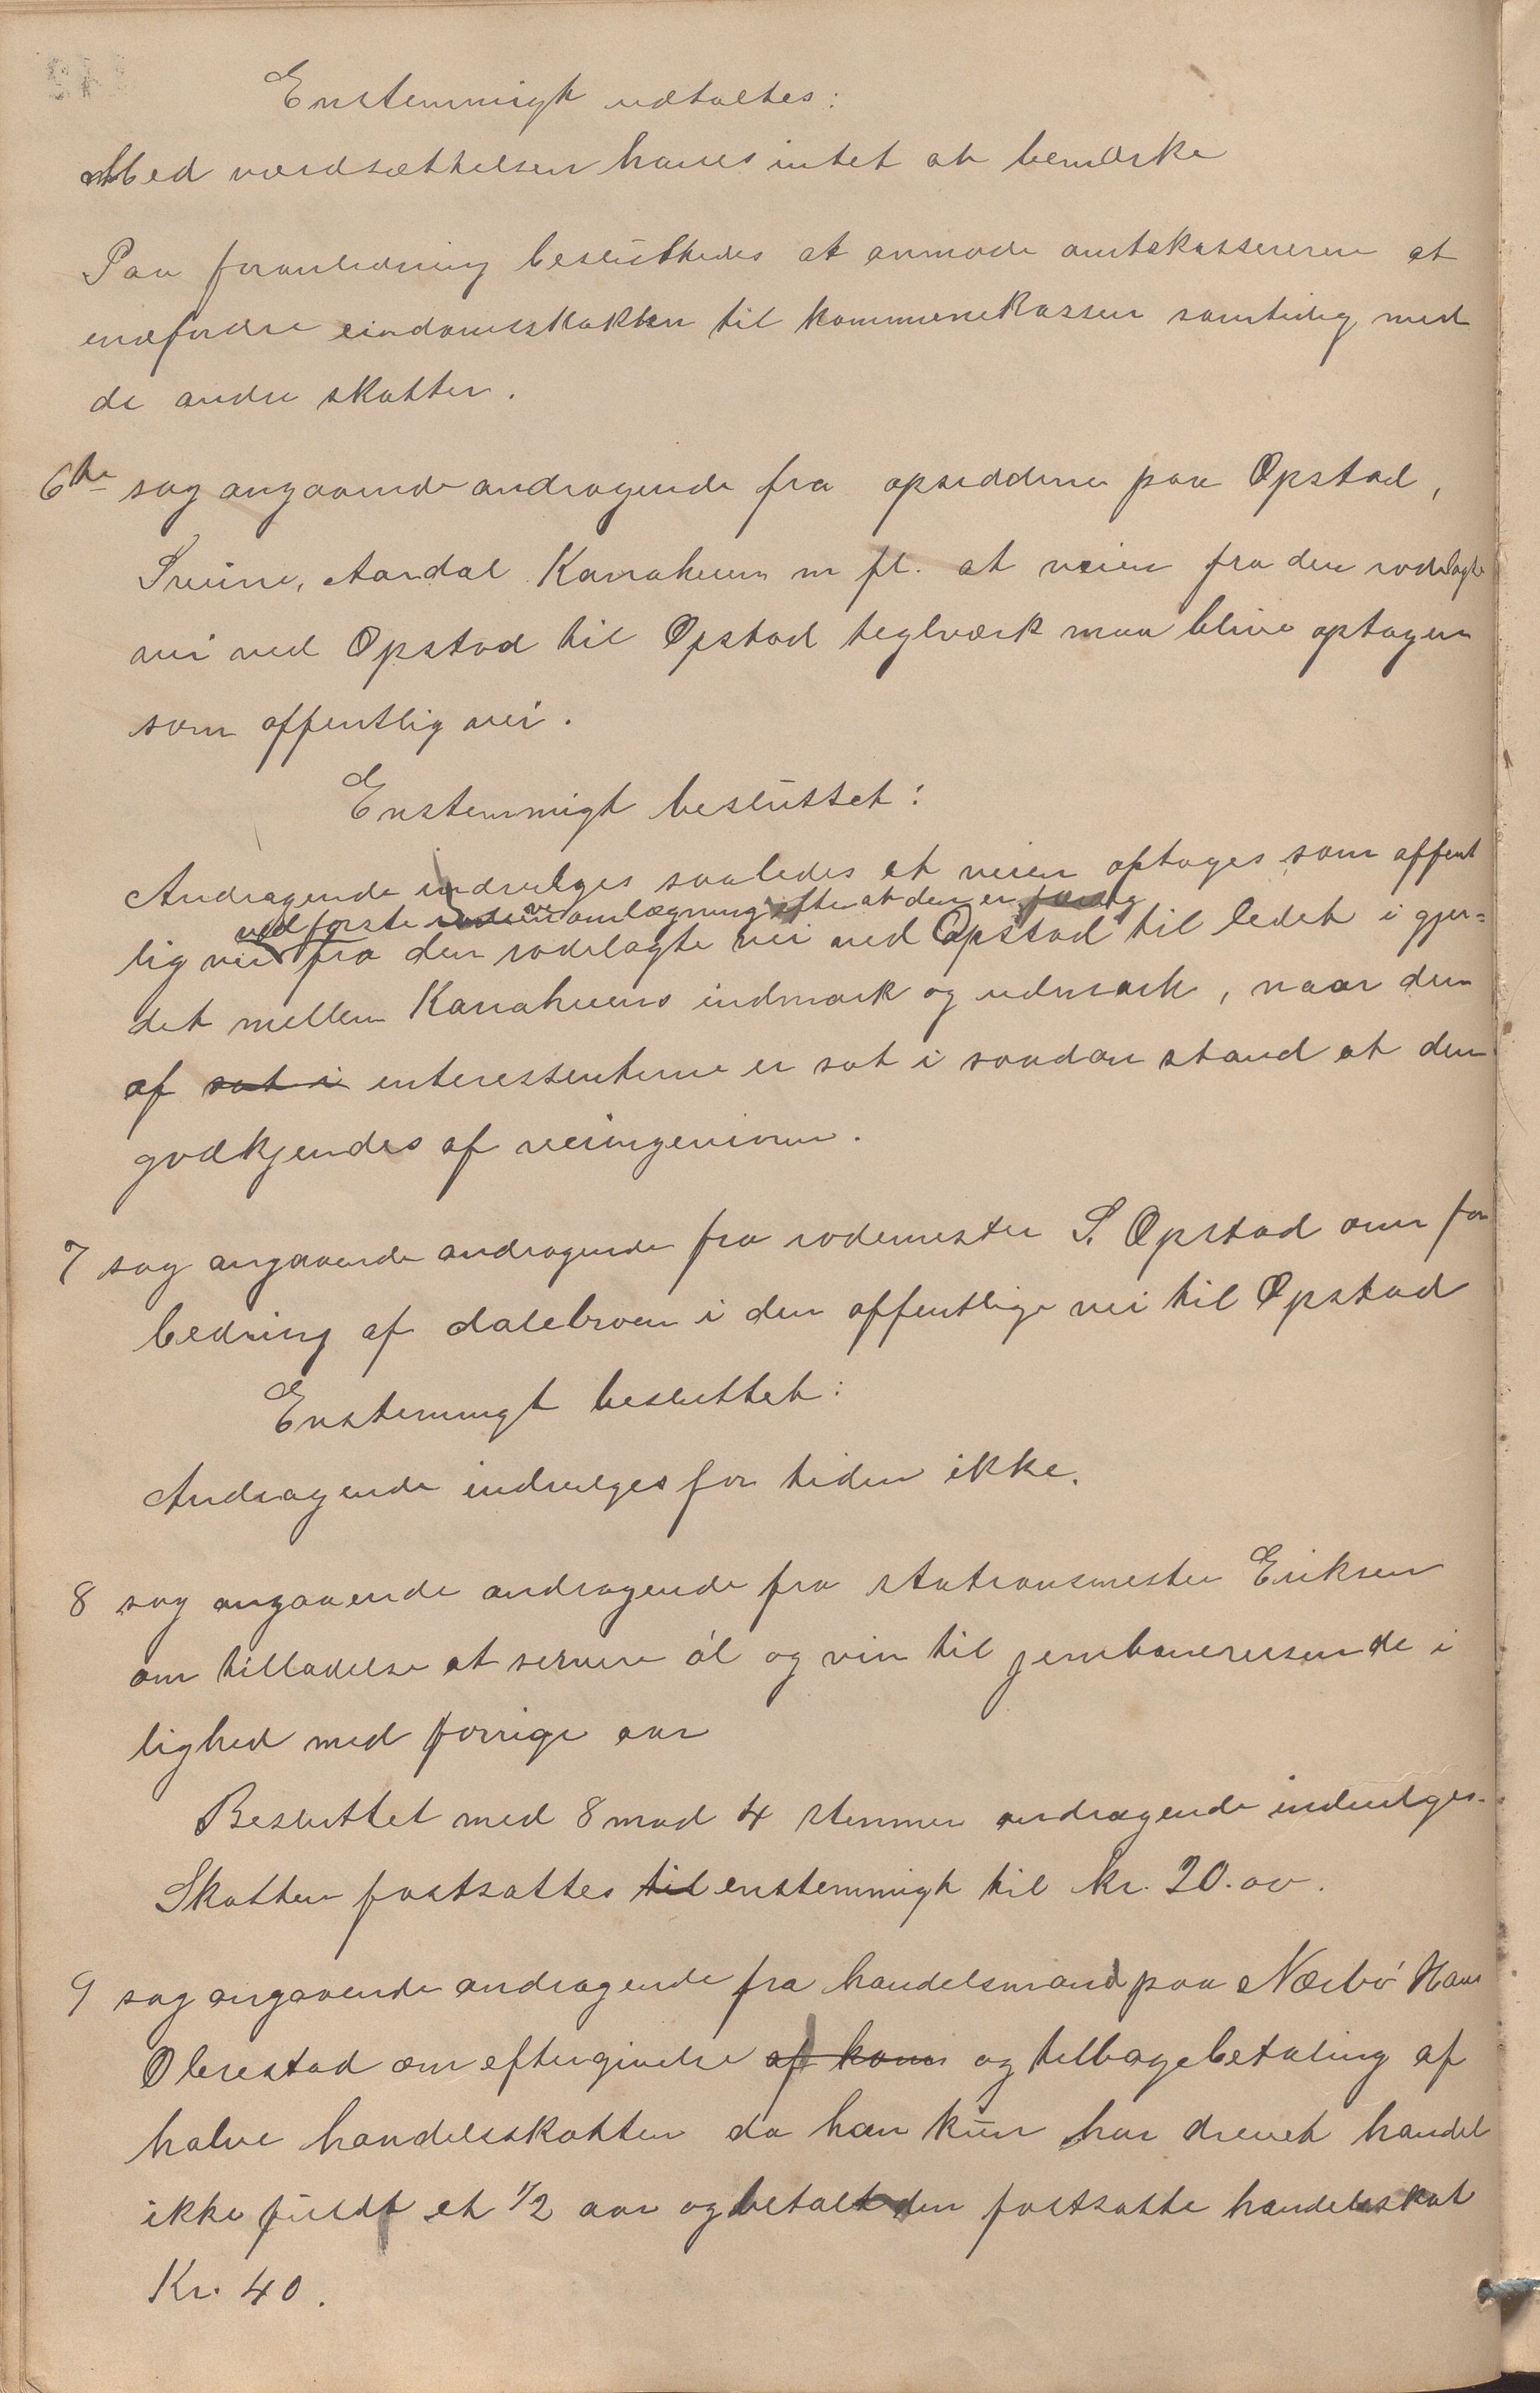 Enstemmigt udtaltes:
Med værdsættelsen haves intet at bemærke
Paa foranledning besluttedes at anmode amtskassereren at
indfordre eindomsskatten til kommunekassen samtidig med
de andre skatter.
6te sag angaaende andragende fra opsidderne paa Opstad,
Aardal Karrahuen m fl. at veien fra den rodelagte
vei ved Opstad til Opstad teglværk maa blive optagen
som offentlig vei.
Enstemmigt besluttet:
Andragende indvilges saaledes at veien optages som offent
ved første omlægning efter at den er færdig
lig vei fra den rodelagte vei ved Opstad til ledet i gjer=
det mellem Karrahuens indmark og udmark, naar den
af sat i interessenterne er sat i saadan stand at den
godkjendes af veiingeniøren.
7 sag angaaende andragende fra rodemester S. Opstad om for
bedring af dalebroen i den offentlige vei til Opstad
Enstemmigt besluttet:
Andragende indvilges for tiden ikke.
8 sag angaaende andragende fra stationsmester Eriksen
om tilladelse at servere øl og vin til jernbanereisende i
lighed med forrige aar
Besluttet med 8 mod 4 stemmer andragende indvilges.
Skatten fastsattes til enstemmigt til kr. 20.00.
9 sag angaaende andragende fra handelsmand paa Nærbø Hans
Obrestad om eftergivelse af kom og tilbagebetaling af
halve handelsskatten da han kun har drevet handel
ikke fuldt et 1/2 aar og betalt den fastsatte handelsskat
Kr. 40.